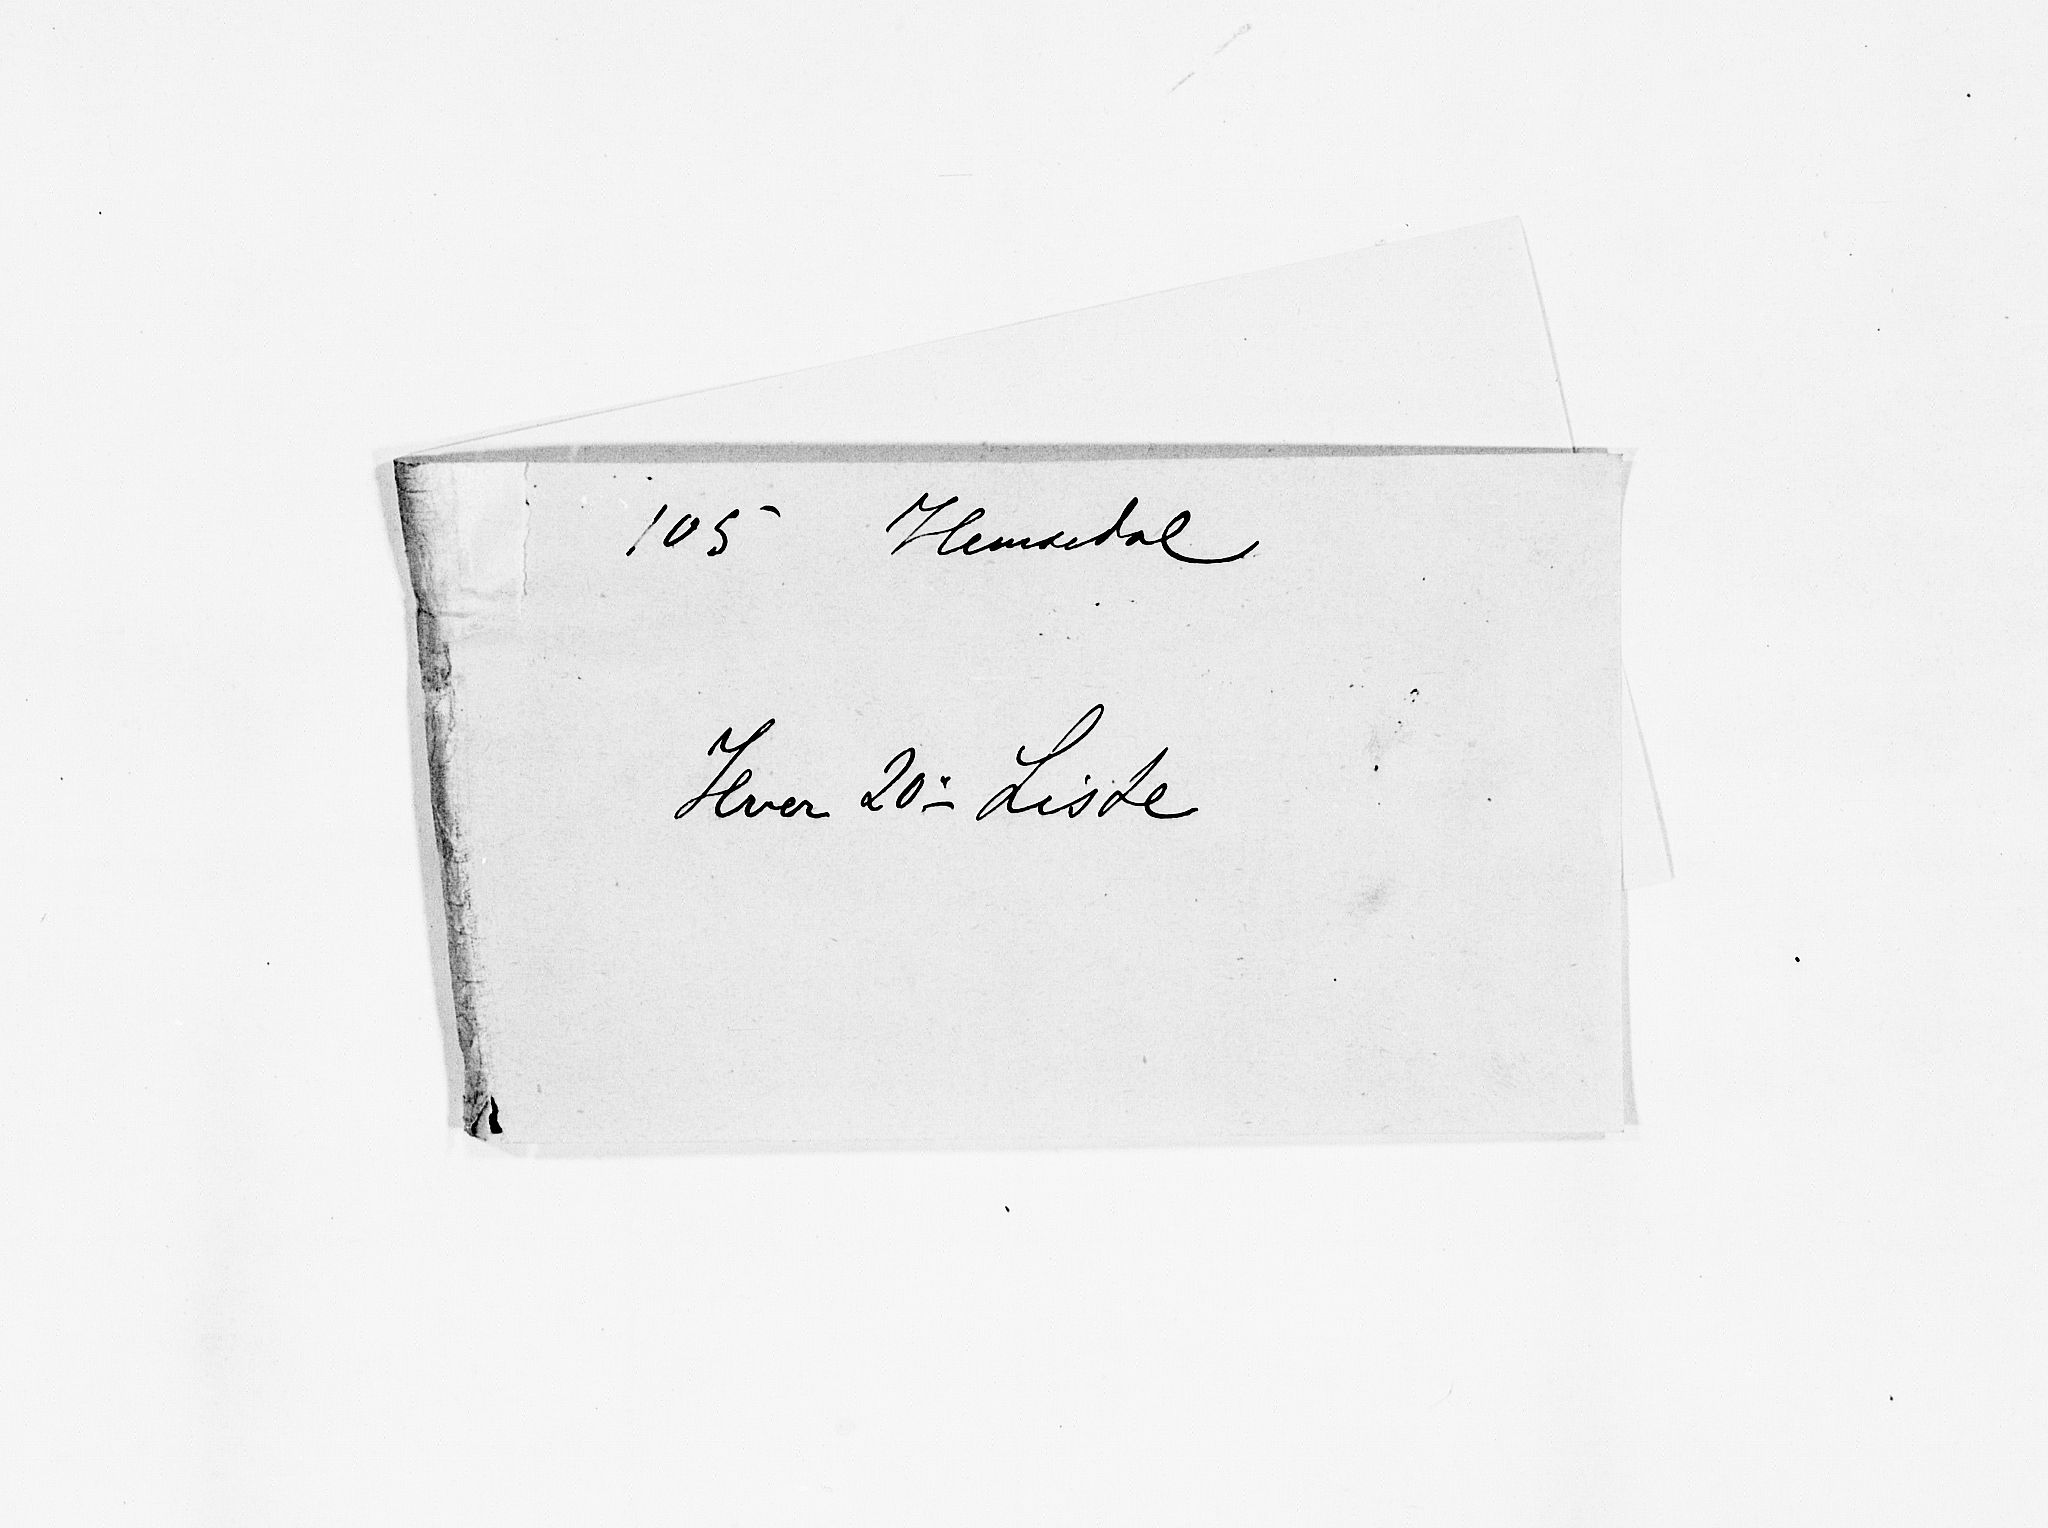 105 Hemsedal
Hver 20de Liste